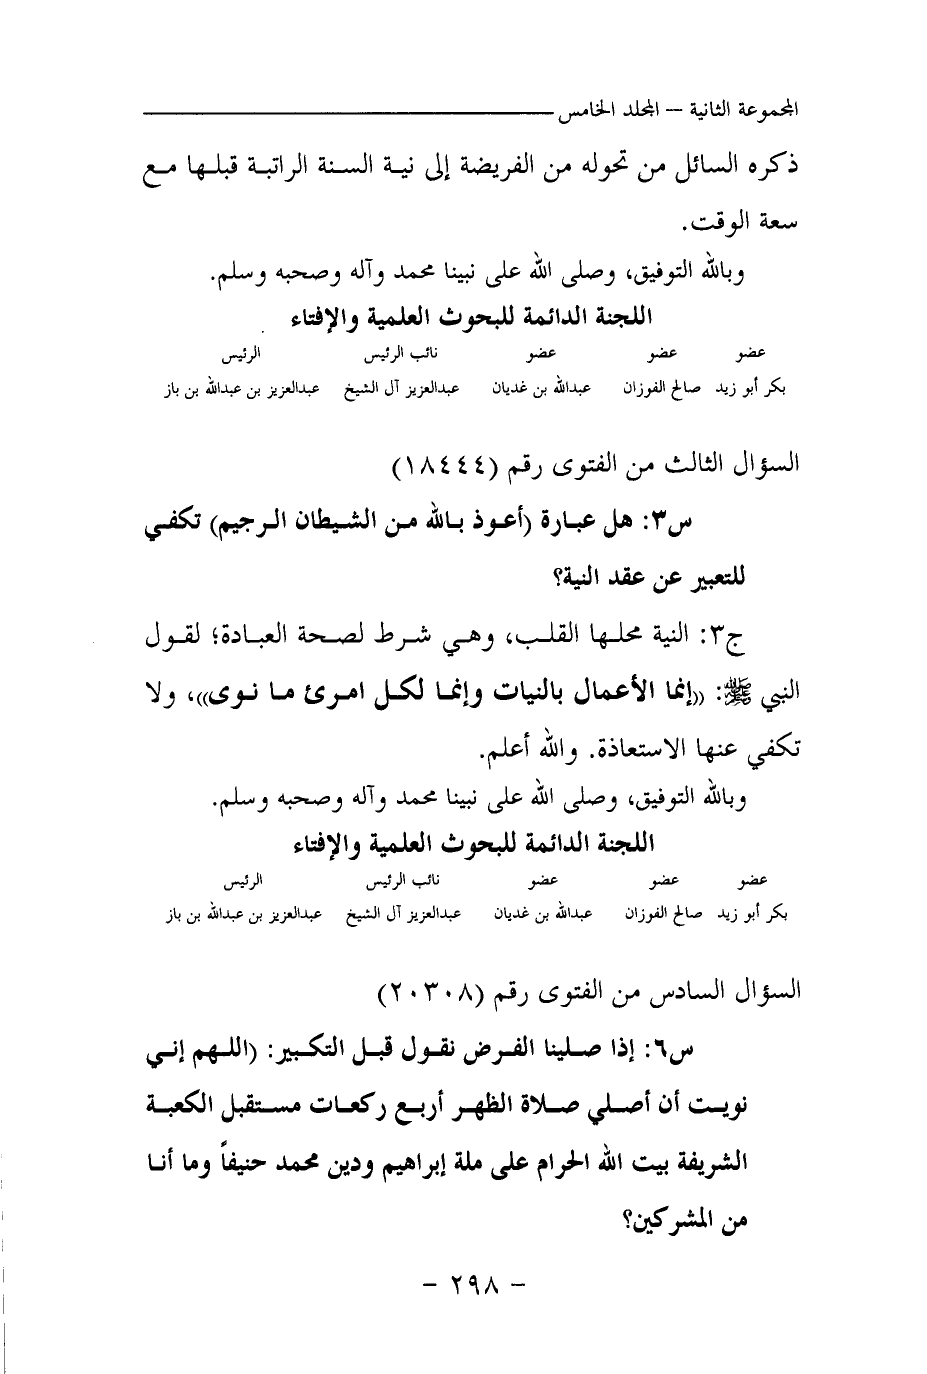 المجموعة الثانية – المجلد الخامس
ذكره السائل من تحوله من الفريضة إلى نية السنة الراتبة قبلها مع
سعة الوقت.
وبالله التوفيق، وصلى الله على نبينا محمد وآله وصحبه وسلم.
اللجنة الدائمة للبحوث العلمية والإفتاء
عضو عضو عضو نائب الرئيس الرئيس
بكر أبو زيد صالح الفوزان عبدالله بن غديان عبدالعزيز آل الشيخ عبدالعزيز بن عبدالله بن باز
السؤال الثالث من الفتوى رقم (١٨٤٤٤)
س٣: هل عبارة (أعوذ بالله من الشيطان الرجيم) تكفي
للتعبير عن عقد النية؟
ج٣: النية محلها القلب، وهي شرط لصحة العبادة؛ لقول
النبي ﷺ: ((إنما الأعمال بالنيات وإنما لكل امرئ ما نوى))، ولا
تكفي عنها الاستعاذة. والله أعلم.
وبالله التوفيق، وصلى الله على نبينا محمد وآله وصحبه وسلم.
اللجنة الدائمة للبحوث العلمية والإفتاء
عضو عضو عضو نائب الرئيس الرئيس
بكر أبو زيد صالح الفوزان عبدالله بن غديان عبدالعزيز آل الشيخ عبدالعزيز بن عبدالله بن باز
السؤال السادس من الفتوى رقم (٢٠٣٠٨)
س٦: إذا صلينا الفرض نقول قبل التكبير: (اللهم إني
نويت أن أصلي صلاة الظهر أربع ركعات مستقبل الكعبة
الشريفة بيت الله الحرام على ملة إبراهيم ودين محمد حنيفاً وما أنا
من المشركين؟
– ٢٩٨ –